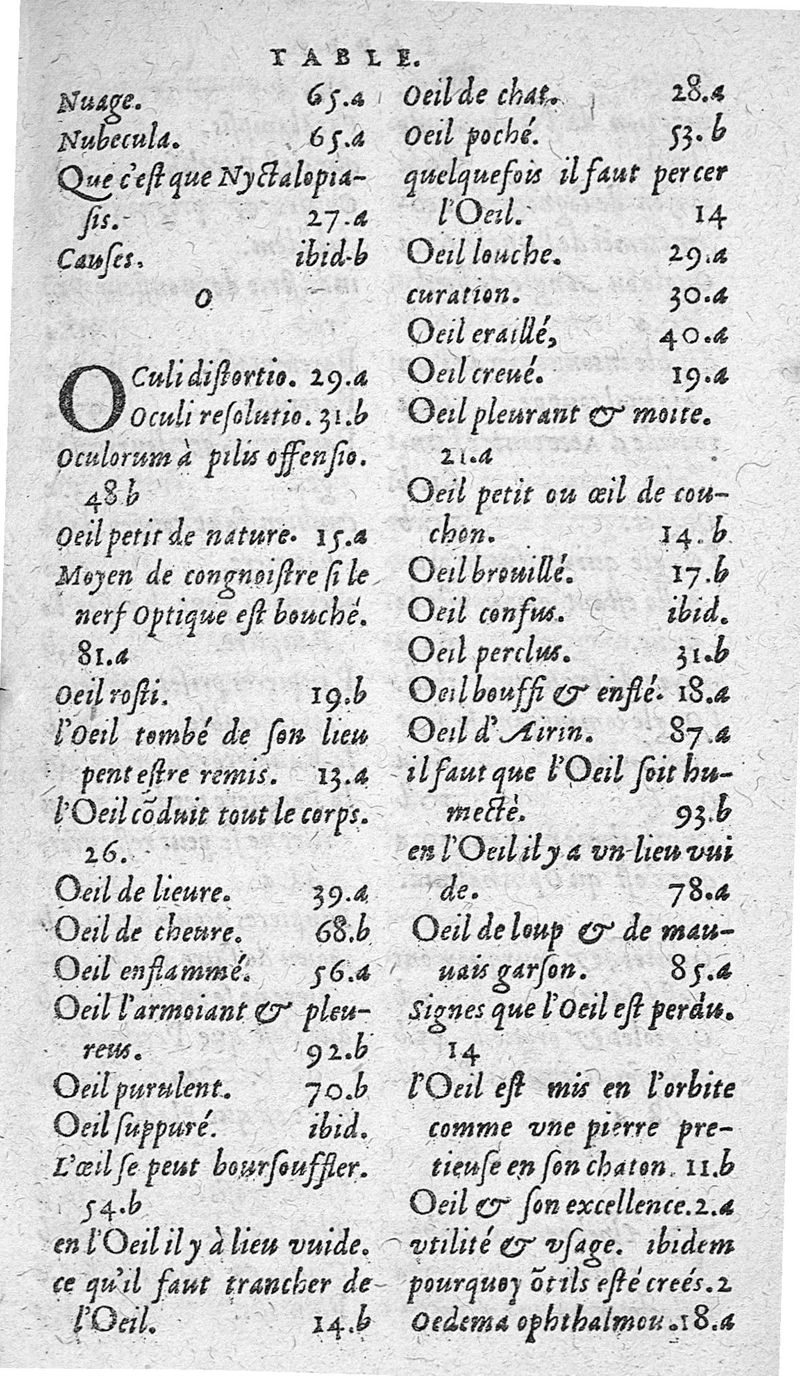 TABLE.
Nuage. 65.a
Nubecula. 65.a
Que c'eſt que Nyctalopia-
ſis. 27.a
Cauſes. ibid.b
O
OCuli diſtortio. 29.a
Oculi reſolutio. 31.b
Oculorum à pilis offenſio.
48 b
Oeil petit de nature. 15.a
Moyen de congnoiſtre ſi le
nerf Optique eſt bouché.
81.a
Oeil roſti. 19.b
l'Oeil tombé de ſon lieu
pent eſtre remis. 13.a
l'Oeil cõduit tout le corps.
26.
Oeil de lieure. 39.a
Oeil de cheure. 68.b
Oeil enflammé. 56.a
Oeil l'armoiant & pleu-
reus. 92.b
Oeil purulent. 70.b
Oeil ſuppuré. ibid.
L'œil ſe peut bourſouffler.
54.b
en l'Oeil il y à lieu vuide.
ce qu'il faut trancher de
l'Oeil. 14.b
Oeil de chat. 28.a
Oeil poché. 53.b
quelquefois il faut percer
l'Oeil. 14
Oeil louche. 29.a
curation. 30.a
Oeil eraillé, 40.a
Oeil creué. 19.a
Oeil pleurant & moite.
21.a
Oeil petit ou œil de cou-
chon. 14.b
Oeil brouillé. 17.b
Oeil confus. ibid.
Oeil perclus. 31.b
Oeil bouffi & enflé. 18.a
Oeil d'Airin. 87.a
il faut que l'Oeil ſoit hu-
mectè. 93.b
en l'Oeil il y a vn lieu vui
de. 78.a
Oeil de loup & de mau-
uais garſon. 85.a
Signes que l'Oeil eſt perdu.
14
l'Oeil eſt mis en l'orbite
comme vne pierre pre-
tieuſe en ſon chaton. 11.b
Oeil & ſon excellence. 2.a
vtilité & vſage. ibidem
pourquoy õt ils eſté creés. 2
Oedema ophthalmou. 18.a